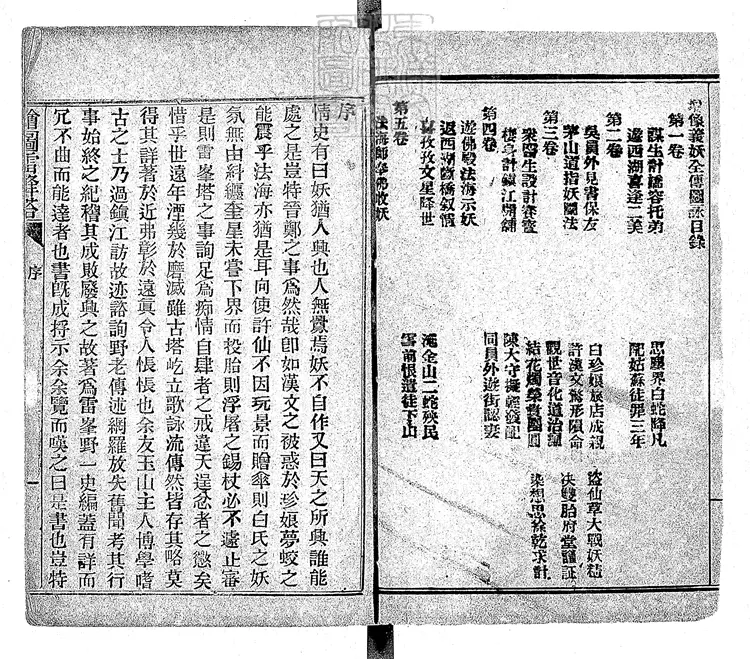 繡像義妖全傳圖詠目錄
第一卷
謀生計嬌容托弟
思塵界白蛇降凡
遊西湖喜逢二美
配姑蘇徒罪三年
第二卷
吳員外見書保友
白珍娘旅店成親
盜仙草大戰妖
茅山道指妖鬭法
許漢文驚形隕命
決雙胎府堂議証
第三卷
眾醫生設計賽
觀世音化道治
棲身計鎮江開舖
結花燭榮貴團圓
染想思徐乾求計
第四卷
遊佛殿法海示妖
陳大守
返西湖斷橋叙情
同員外遊街認妻
文星降世
淹金山二蛇殃民
第五卷
法海師奉佛收妖
雪前恨道徒下山
序
情史有曰妖猶人興也人無釁焉妖不自作又曰天之所興誰能
處之是豈特晉鄭之事爲然哉卽如漢文之被惑於珍娘夢蛟之
能震乎法海亦猶是耳向使許仙不因玩景而贈傘則白氏之妖
氛無由糾纏奎星未嘗下界而投胎則浮屠之錫杖必不遠止審
是則雷峯塔之事詢足爲痴情自肆者之戒違天逞忿者之懲矣
惜乎世遠年湮幾於磨滅雖古塔屹立歌詠流傳然皆存其略莫
得其詳著於近弗彰於遠眞令人悵悵也余友玉山主人博學嗜
古之士乃過鎮江訪故迹諮詢野老傳述網羅放失舊聞考其行
事始終之紀稽其成敗廢興之故著爲雷峯野一史編蓋有詳而
冗不曲而能達者也書旣成將示余余覽而嘆之曰是書也豈特
繪圖雷峯塔
序
一